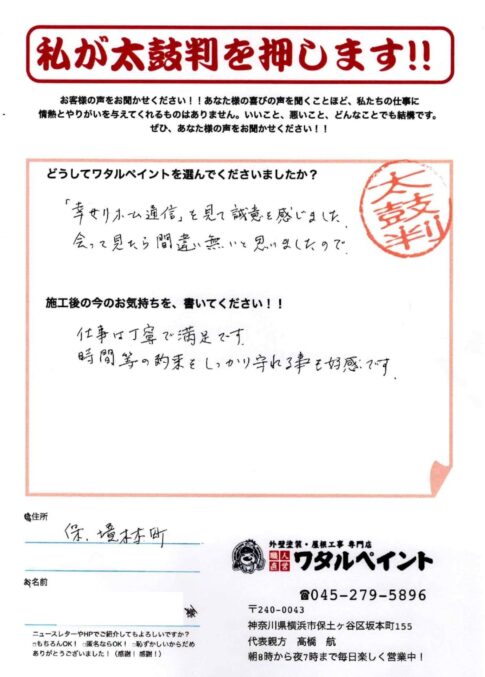 私が太鼓判を押します!!
お客様の声をお聞かせください！！あなた様の喜びの声を聞くことほど、私たちの仕事に
情熱とやりがいを与えてくれるものはありません。いいこと、悪いこと、どんなことでも結構です。
ぜひ、あなた様の声をお聞かせください！！
どうしてワタルペイントを選んでくださいましたか？
太鼓判
「幸せリホーム通信」を見て誠意を感じました。
会って見たら間違い無いと思いましたので。
施工後の今のお気持ちを、書いてください！！
仕事は丁寧で満足です。
時間等の約束をしっかり守れる事も好感です。
ご住所
保、境木本町
お名前
ニュースレターやHPでご紹介してもよろしいですか？
□もちろんOK！ □匿名ならOK！ □恥ずかしいからだめ
ありがとうございました！（感謝！感謝！）
外壁塗装・屋根工事 専門店
職人直営 ワタルペイント
☎045-279-5896
〒240-0043
神奈川県横浜市保土ヶ谷区坂本町155
代表親方 高橋 航
朝8時から夜7時まで毎日楽しく営業中！